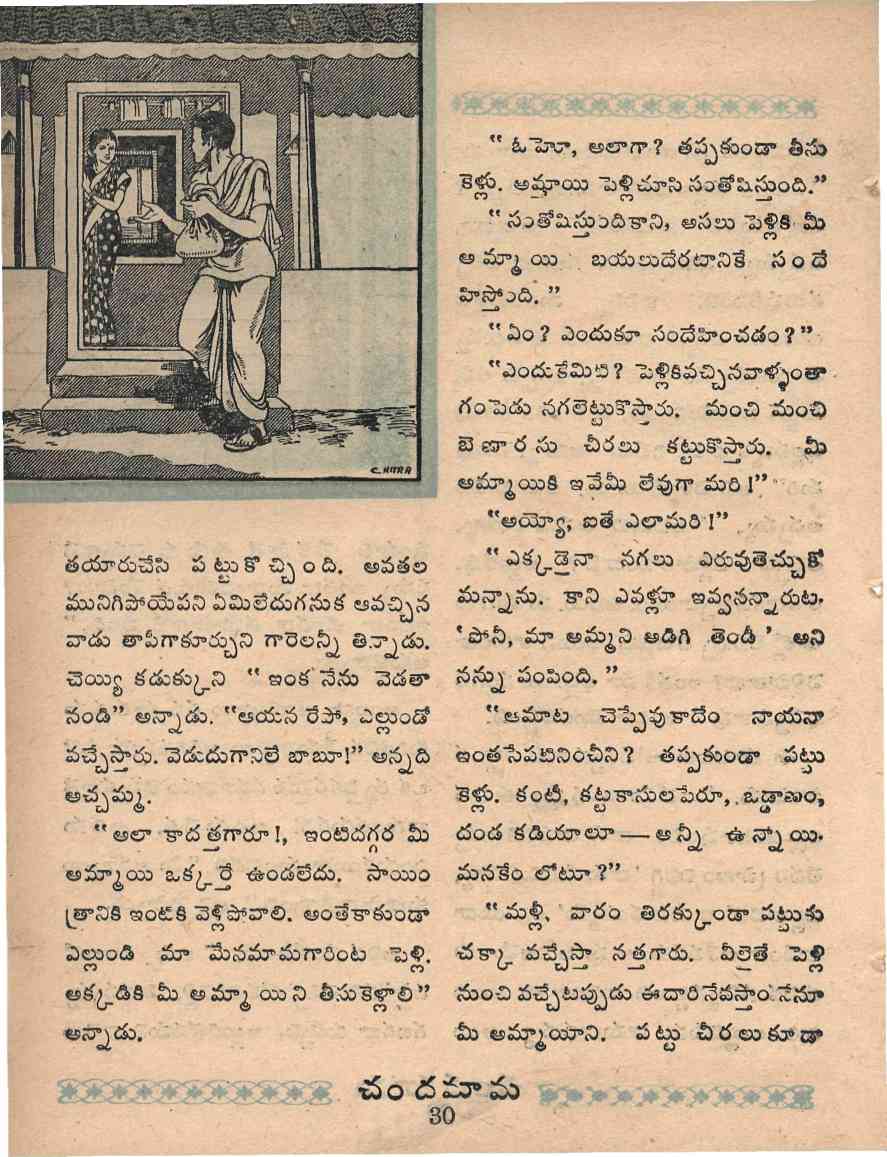 C. HITRA
తయారుచేసి పట్టుకొచ్చింది. అవతల
మునిగిపోయేపని ఏమిలేదుగనుక ఆవచ్చిన
వాడు తాపీగాకూర్చుని గారెలన్నీ తిన్నాడు.
చెయ్యి కడుక్కుని “ ఇంక నేను వెడతా
నండి” అన్నాడు. “ఆయన రేపో, ఎల్లుండో
వచ్చేస్తారు. వెడుదుగానిలే బాబూ!” అన్నది
అచ్చమ్మ.
“ అలా కాదత్తగారూ!, ఇంటిదగ్గర మీ
అమ్మాయి ఒక్కర్తే ఉండలేదు. సాయిం
త్రానికి ఇంటికి వెళ్లిపోవాలి. అంతేకాకుండా
ఎల్లుండి మా మేనమామగారింట పెళ్లి.
అక్కడికి మీ అమ్మాయిని తీసుకెళ్లాలి”
అన్నాడు.
“ ఓహో, అలాగా? తప్పకుండా తీసు
కెళ్లు. అమ్మాయి పెళ్లిచూసి సంతోషిస్తుంది.”
“ సంతోషిస్తుందికాని, అసలు పెళ్లికి మీ
అమ్మాయి బయలుదేరటానికే సందే
హిస్తోంది. ”
“ ఏం? ఎందుకూ సందేహించడం?”
“ఎందుకేమిటి? పెళ్లికివచ్చినవాళ్ళంతా
గంపెడు నగలెట్టుకొస్తారు. మంచి మంచి
బెణారసు చీరలు కట్టుకొస్తారు. మీ
అమ్మాయికి ఇవేమీ లేవుగా మరి!”
“అయ్యో, ఐతే ఎలామరి!”
“ ఎక్కడైనా నగలు ఎరువుతెచ్చుకో
మన్నాను. కాని ఎవళ్లూ ఇవ్వనన్నారుట.
‘ పోనీ, మా అమ్మని అడిగి తెండీ ’ అని
నన్ను పంపింది. ”
“ఆమాట చెప్పేవుకాదేం నాయనా
ఇంతసేపటినించీని? తప్పకుండా పట్టు
కెళ్లు. కంటీ, కట్టకాసులపేరూ, ఒడ్డాణం,
దండ కడియాలూ — అన్నీ ఉన్నాయి.
మనకేం లోటూ?”
“ మళ్లీ, వారం తిరక్కుండా పట్టుకు
చక్కా వచ్చేస్తా నత్తగారు. వీలైతే పెళ్లి
నుంచి వచ్చేటప్పుడు ఈదారినేవస్తాం నేనూ
మీ అమ్మాయీని. పట్టు చీరలుకూడా
చందమామ
30